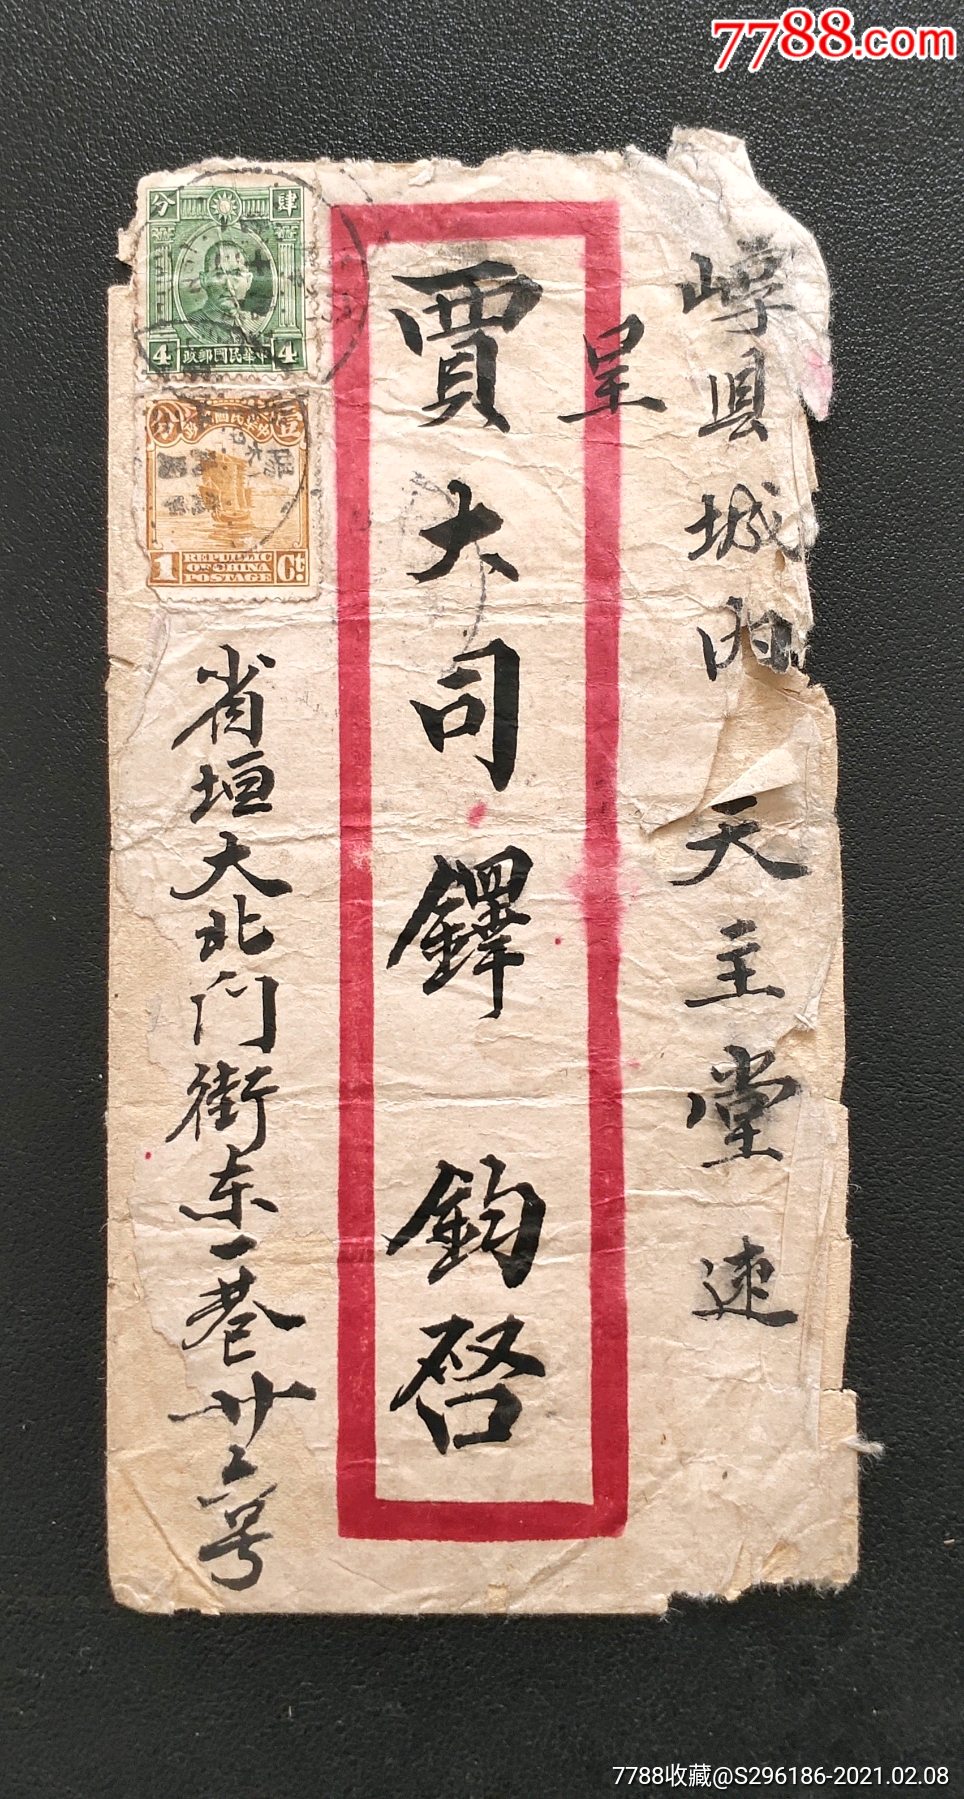 7788.com
崞县城内 天主堂 速
呈
賈大司鐸 鈞啓
省垣大北门街东一巷廿六号
肆分
4 中華民國郵政 4
壹分
中華民國郵政
1 REPUBLIC OF CHINA POSTAGE Ct.
7788收藏@S296186-2021.02.08